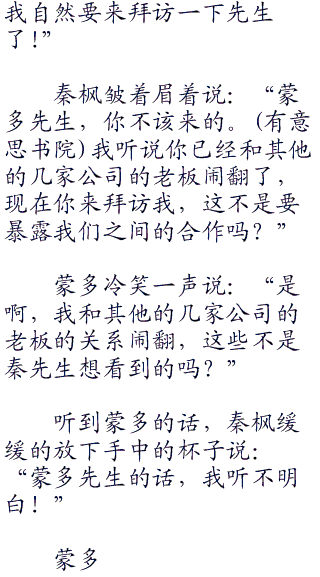 我自然要来拜访一下先生
了!”
秦枫皱着眉着说：“蒙
多先生，你不该来的。(有意
思书院)我听说你已经和其他
的几家公司的老板闹翻了，
现在你来拜访我，这不是要
暴露我们之间的合作吗？”
蒙多冷笑一声说：“是
啊，我和其他的几家公司的
老板的关系闹翻，这些不是
秦先生想看到的吗？”
听到蒙多的话，秦枫缓
缓的放下手中的杯子说：
“蒙多先生的话，我听不明
白！”
蒙多